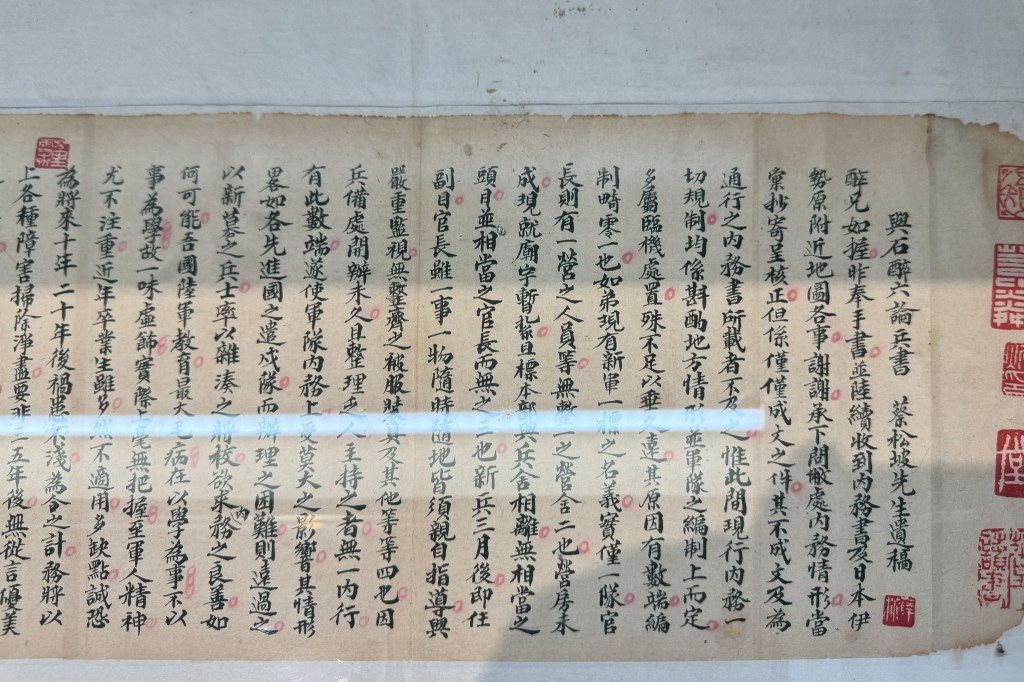 與石醉六論兵書 蔡松坡先生遺稿
醉兄如握昨奉手書並陸續收到內務書及日本伊
勢原附近地圖各事謝謝承下問敝處內務情形當
彙抄寄呈核正但係僅僅成文之件其不成文及為
通行之內務書所載者不及之惟此間現行內務一
切規制均係斟酌地方情形並軍隊之編制上而定
多屬臨機處置殊不足以垂久遠其原因有數端編
制畸零一也如弟現有新軍一標之名義實僅一隊官
長則有一營之人員等無數一之營舍二也營房未
成現就廟宇暫紮且標本部與兵舍相離無相當之
頭目並相當之官長而無之三也新兵三月後即任
副目官長雖一事一物隨時隨地皆須親自指導與
嚴重監視無整齊之被服賦具及其他等等四也因
兵備處開辦未久且整理乏人主持之者無一內行
有此數端遂使軍隊內務上受莫大之影響其情形
畧如各先進國之遣戍隊而辦理之困難則遠過之
以新募之兵士率以雜湊之將校欲求內務之良善如
何可能吾國陸軍教育最大毛病在以學為事不以
事為學故一味虛飾實際上毫無把握至軍人精神
尤不注重近年卒業生雖多然不適用多缺點誠恐
為將來十年二十年後禍患不淺為今之計務將以
上各種障害掃除淨盡要非三五年後無從言優美